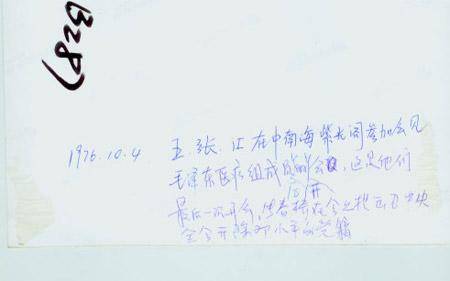 1976.10.4 王.张.江在中南海紫光阁参加会见
毛泽东医疗组成员的会，这是他们
召开
最后一次开会，春桥在会上提出中央
全会开除邓小平的党籍